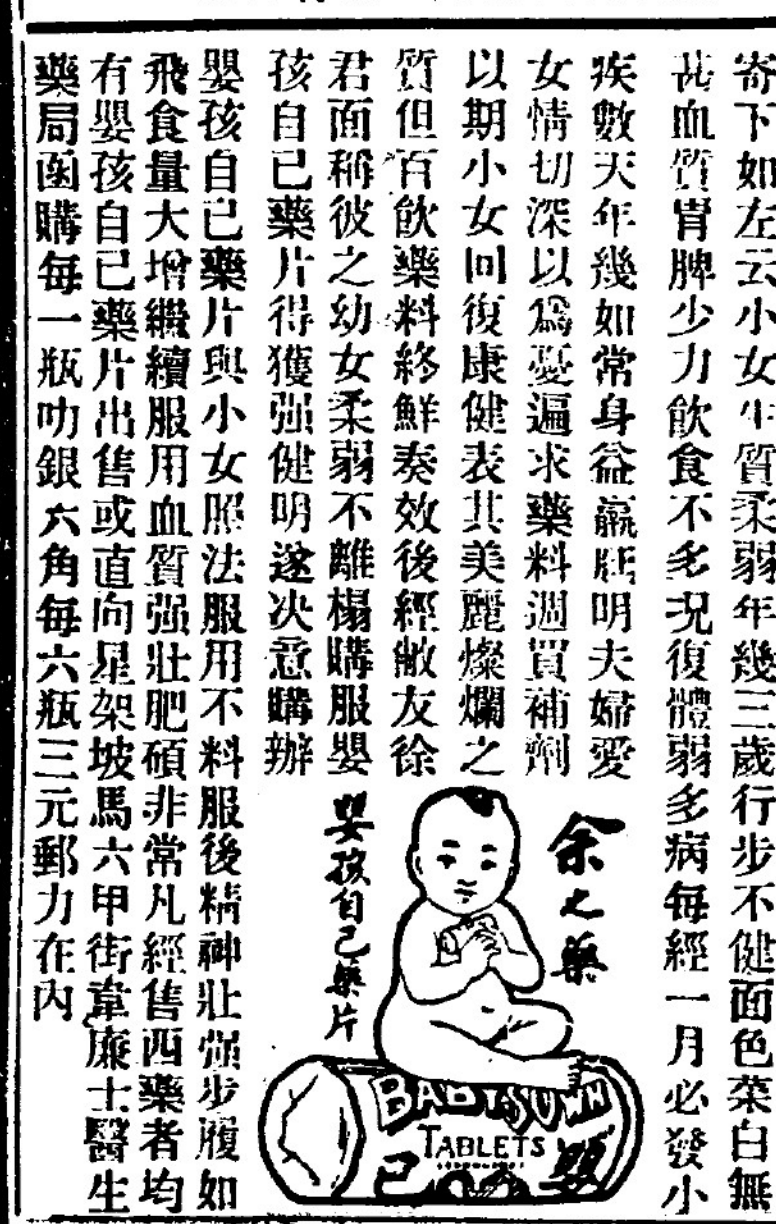 寄下如左云小女生質柔弱年幾三歲行步不健面色菜白無
甚血質胃脾少力飲食不多况復體弱多病每經一月必發小
疾數天年幾如常身益羸尫明夫婦愛
女情切深以爲憂遍求藥料週買補劑
以期小女回復康健表其美麗燦爛之
質但百飲藥料終鮮奏效後經敝友徐
君面稱彼之幼女柔弱不離楊購服嬰
孩自己藥片得獲强健明遂决意購辦
嬰孩自己藥片與小女照法服用不料服後精神壯强步履如
飛食量大增繼續服用血質强壯肥碩非常凡經售西藥者均
有嬰孩自己藥片出售或直向星架坡馬六甲街韋廉士醫生
藥局函購每一瓶叻銀六角每六瓶三元郵力在內
余之藥
嬰孩自己藥片
BABY'S OWN
TABLETS
嬰 己